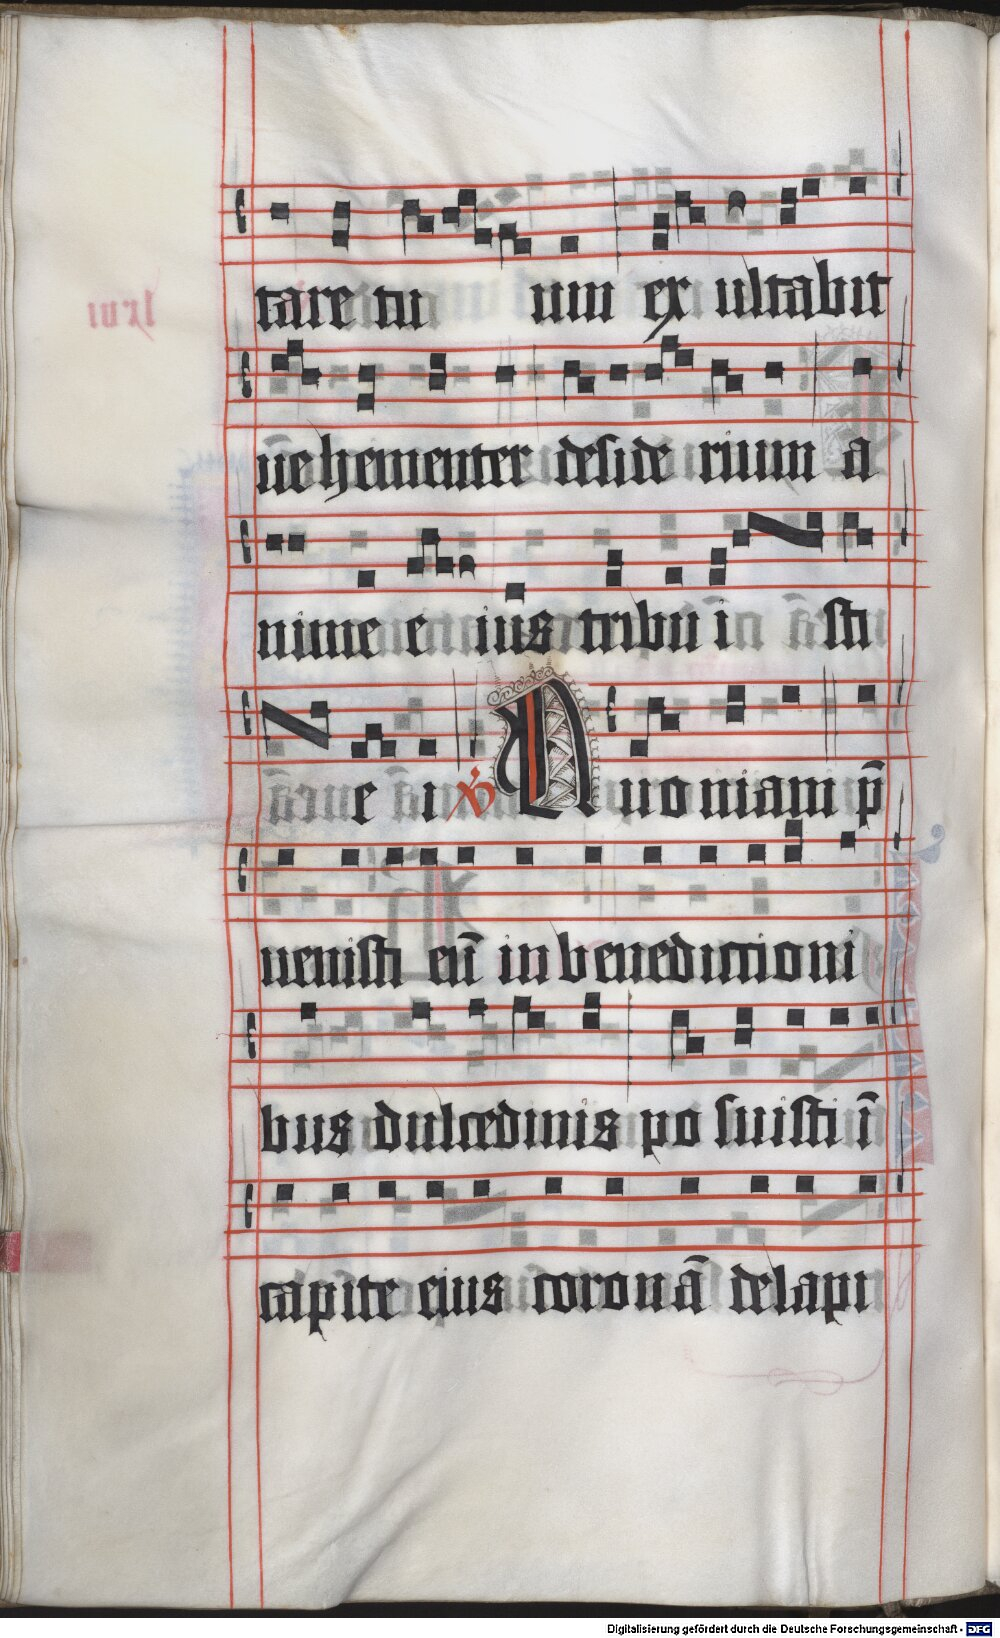 tare tu um ex ultabit
vehementer deside rium a
nime e ius tribu i sti
e i ℣ Quoniam p̄
venisti eū in benedictioni
bus dulcedinis po suisti ī
capite ejus coronā delapi
lxvi
Digitalisierung gefördert durch die Deutsche Forschungsgemeinschaft - DFG